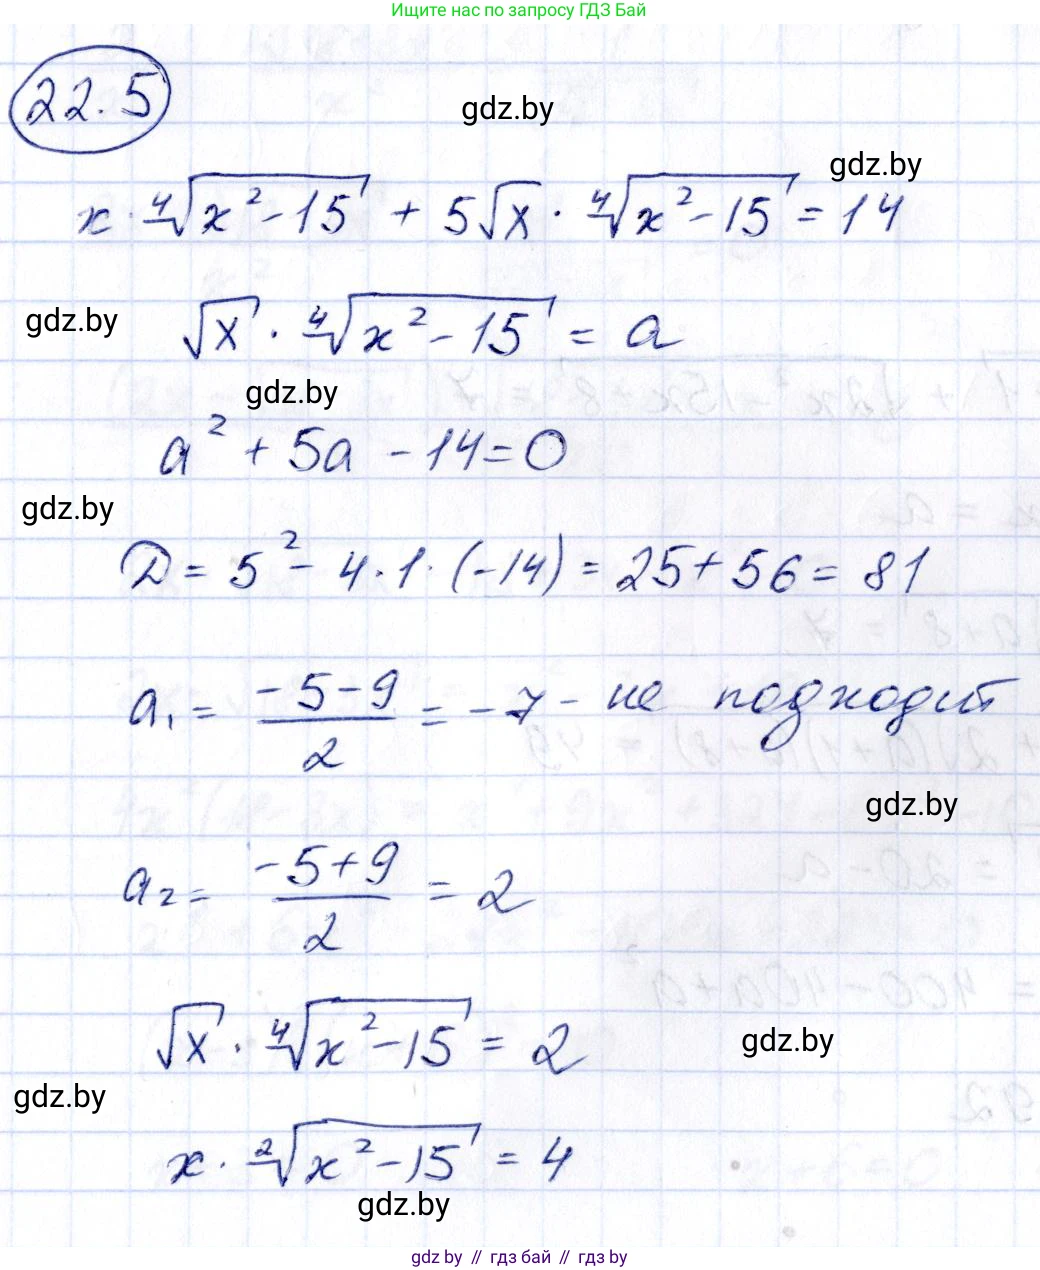 Ищите нас по запросу ГДЗ Бай
22.5
gdz.by
gdz.by
x · ⁴√(x² - 15) + 5√x · ⁴√(x² - 15) = 14
gdz.by
√x · ⁴√(x² - 15) = a
gdz.by
a² + 5a - 14 = 0
gdz.by
D = 5² - 4 · 1 · (-14) = 25 + 56 = 81
a₁ = (-5 - 9)/2 = -7 - не подходит
gdz.by
a₂ = (-5 + 9)/2 = 2
√x · ⁴√(x² - 15) = 2
gdz.by
gdz.by
x · ²√(x² - 15) = 4
gdz.by
gdz.by // гдз бай // гдз by